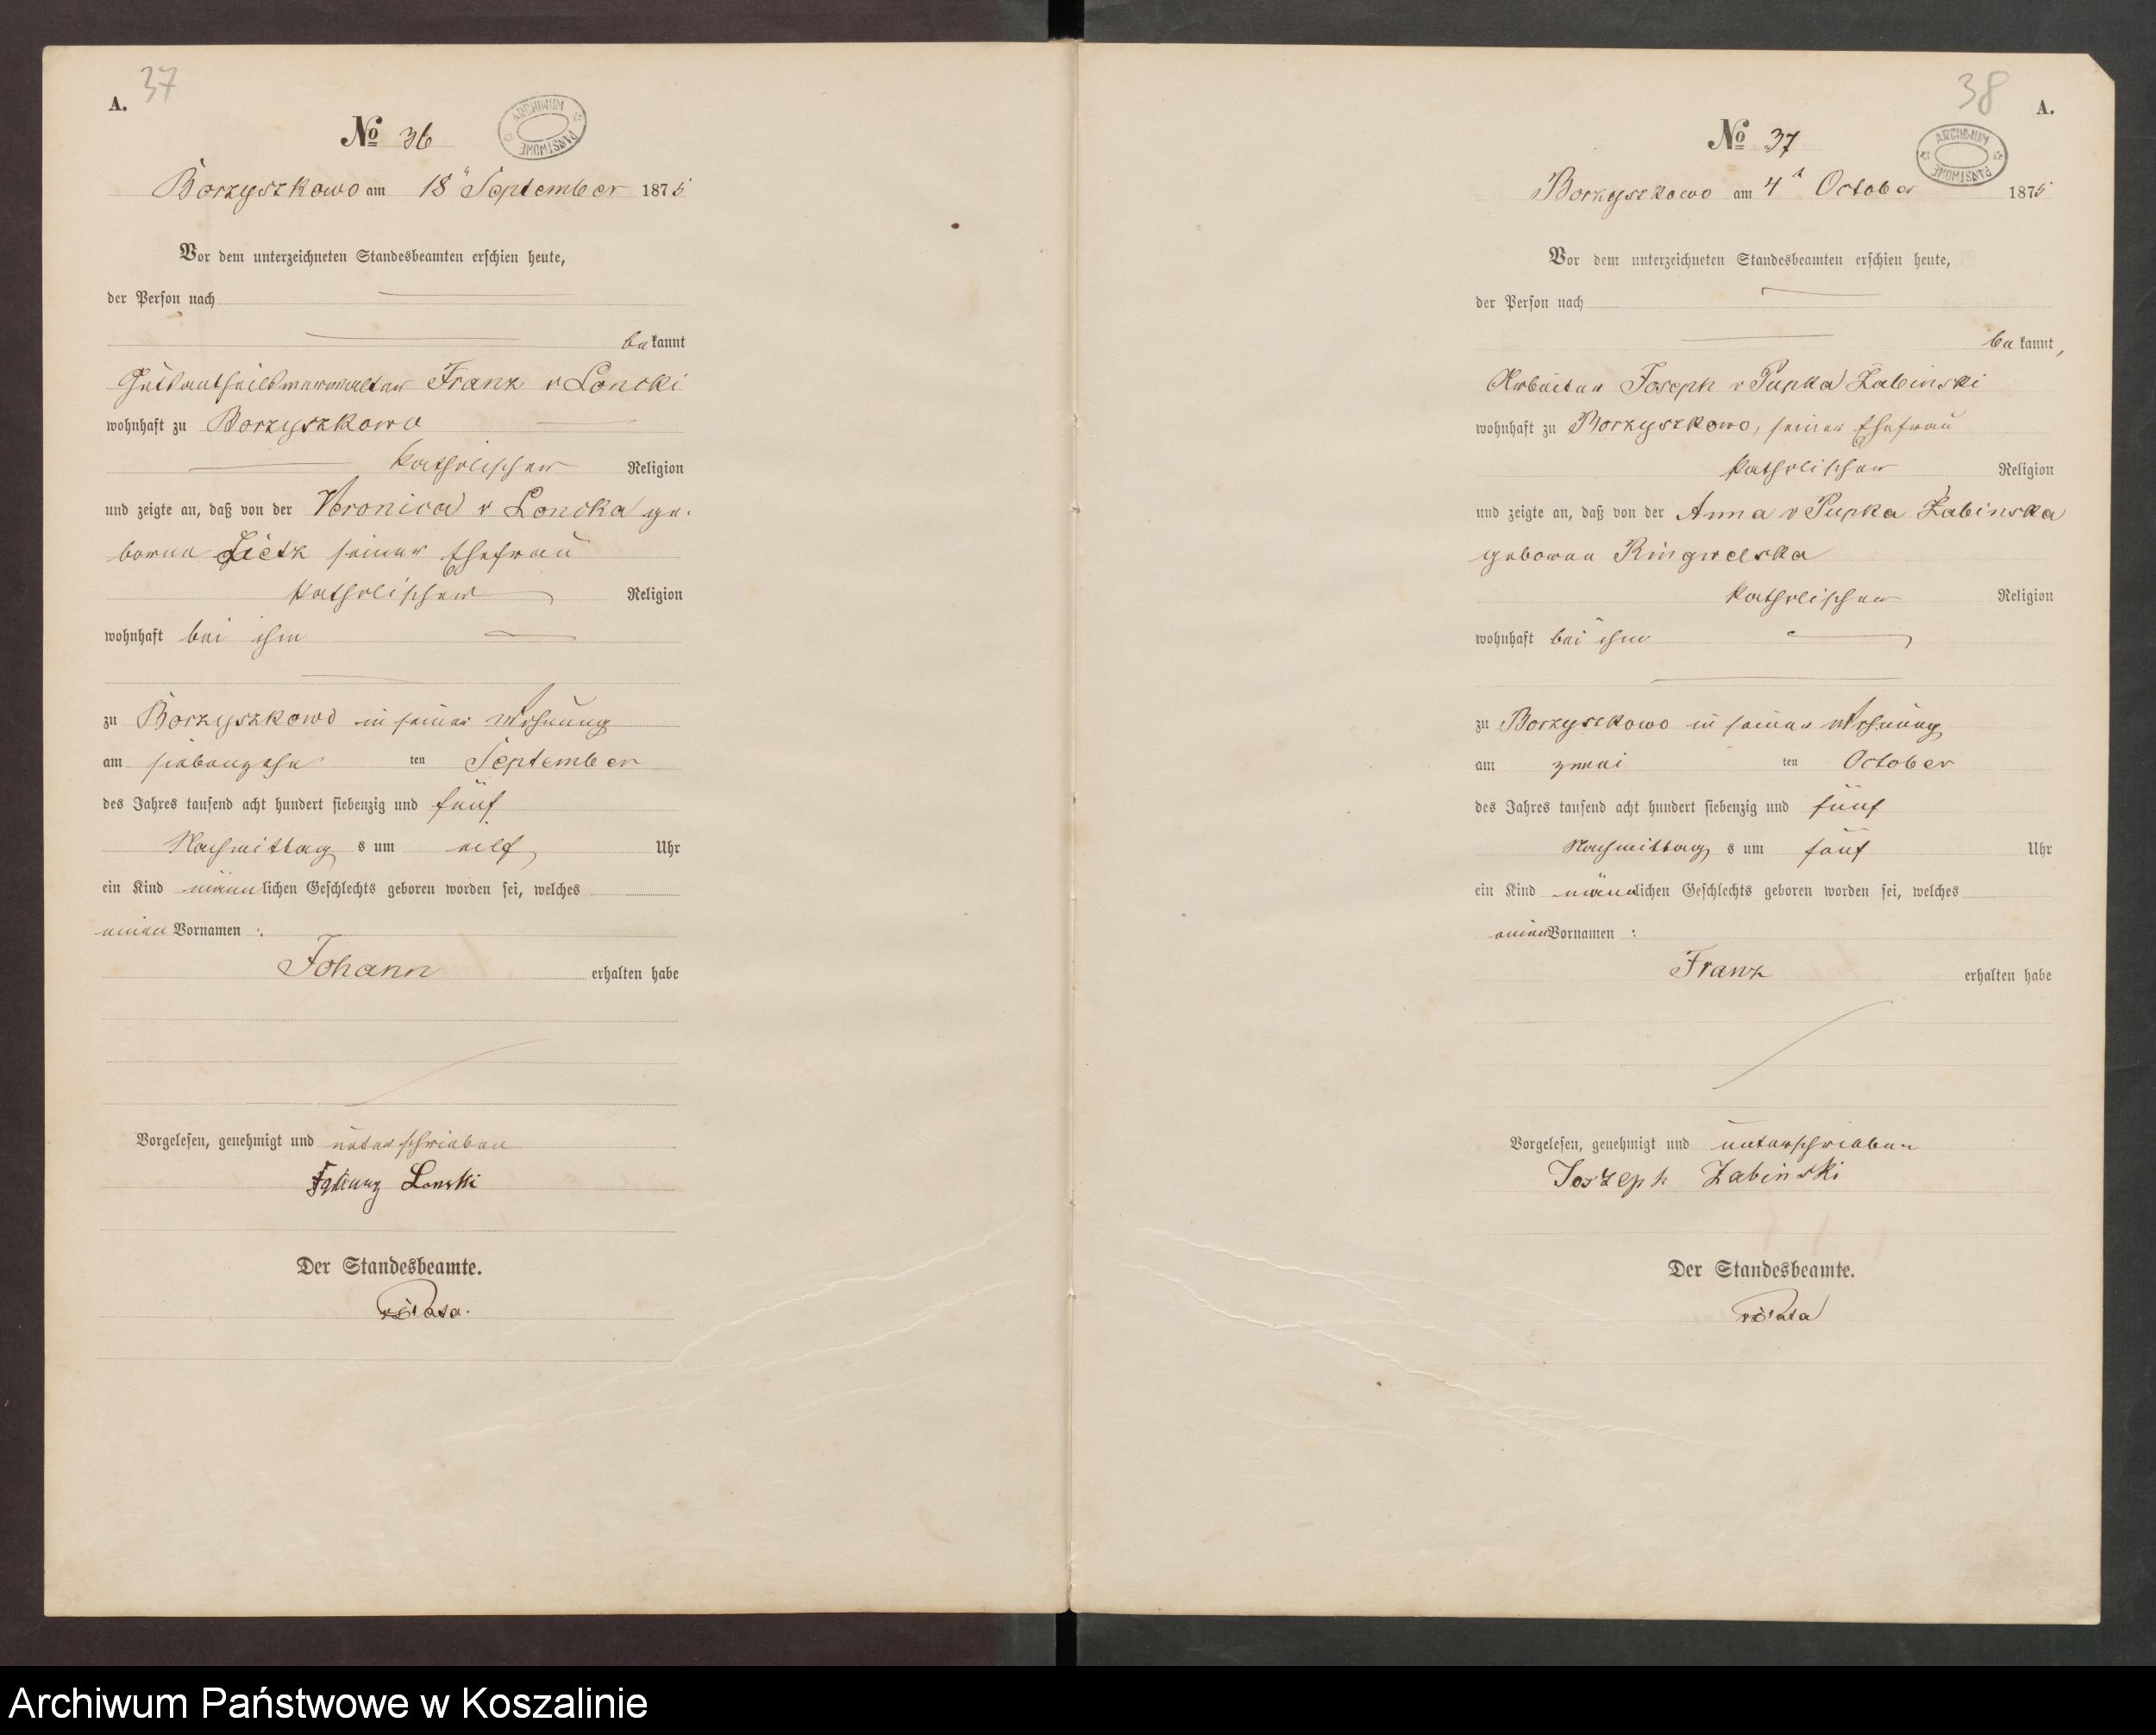 A. 37
No 36
ARCHIWUM PAŃSTWOWE
Borzyszkowo am 18" September 1875
Vor dem unterzeichneten Standesbeamten erschien heute,
der Person nach
bekannt
Gutsantheilsverwalter Franz v Loncki
wohnhaft zu Borzyszkowo
katholischer Religion
und zeigte an, daß von der Veronica vLoncka ge-
borne Lietz seiner Ehefrau
katholischer Religion
wohnhaft bei ihm
zu Borzyszkowo in seiner Wohnung
am siebenzehn ten September
des Jahres tausend acht hundert siebenzig und fünf
Nachmittags um eilf Uhr
ein Kind männlichen Geschlechts geboren worden sei, welches
einen Vornamen :
Johann erhalten habe
Vorgelesen, genehmigt und unterschrieben
Lonski
Der Standesbeamte.
38 A.
No 37
ARCHIWUM PAŃSTWOWE
Borzyszkowo am 4t October 1875
Vor dem unterzeichneten Standesbeamten erschien heute,
der Person nach
bekannt,
Arbeiter Joseph v Pupka Zabinski
wohnhaft zu Borzyszkowo, seiner Ehefrau
katholischer Religion
und zeigte an, daß von der Anna v Pupka Zabinska
geboren Ringwelska
katholischer Religion
wohnhaft bei ihm
zu Borzyszkowo in seiner Wohnung
am zwei ten October
des Jahres tausend acht hundert siebenzig und fünf
Nachmittags um fünf Uhr
ein Kind männlichen Geschlechts geboren worden sei, welches
einen Vornamen :
Franz erhalten habe
Vorgelesen, genehmigt und unterschrieben
Joszeph Zabinski
Der Standesbeamte.
Archiwum Państwowe w Koszalinie